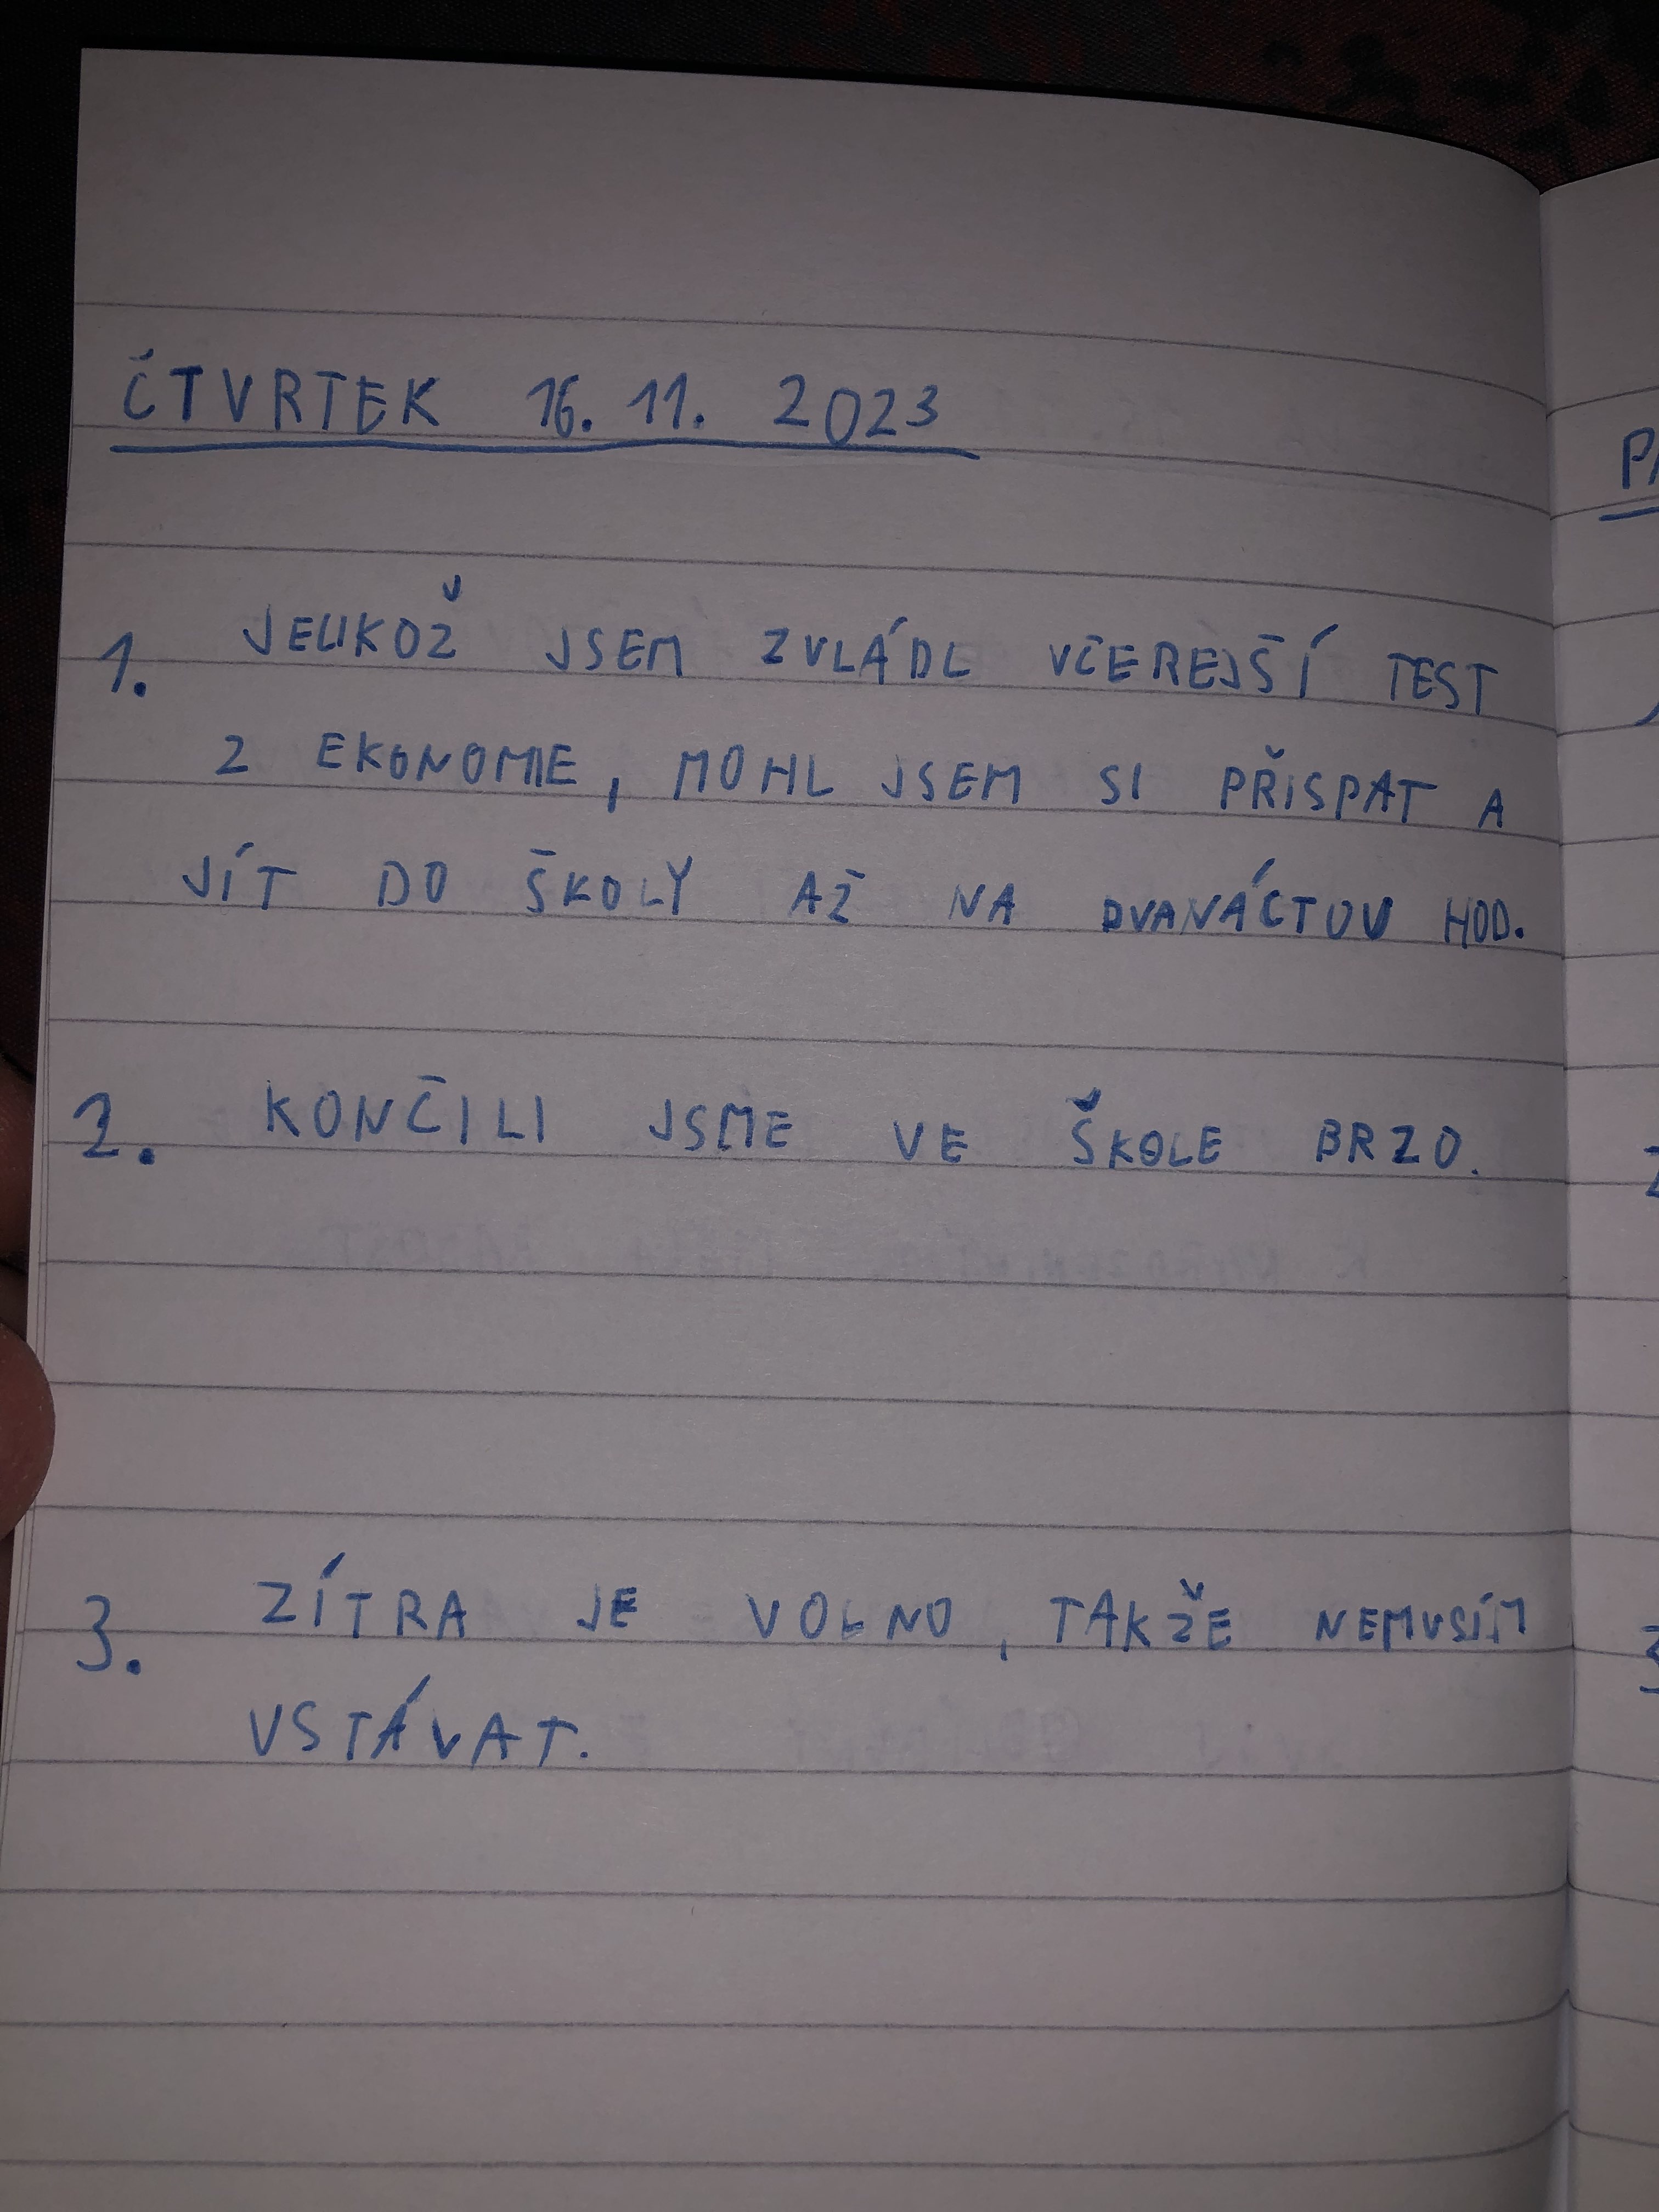 ČTVRTEK 16. 11. 2023
1. JELIKOŽ JSEM ZVLÁDL VČEREJŠÍ TEST
Z EKONOMIE, MOHL JSEM SI PŘISPAT A
JÍT DO ŠKOLY AŽ NA DVANÁCTOU HOD.
2. KONČILI JSME VE ŠKOLE BRZO.
3. ZÍTRA JE VOLNO, TAKŽE NEMUSÍM
VSTÁVAT.